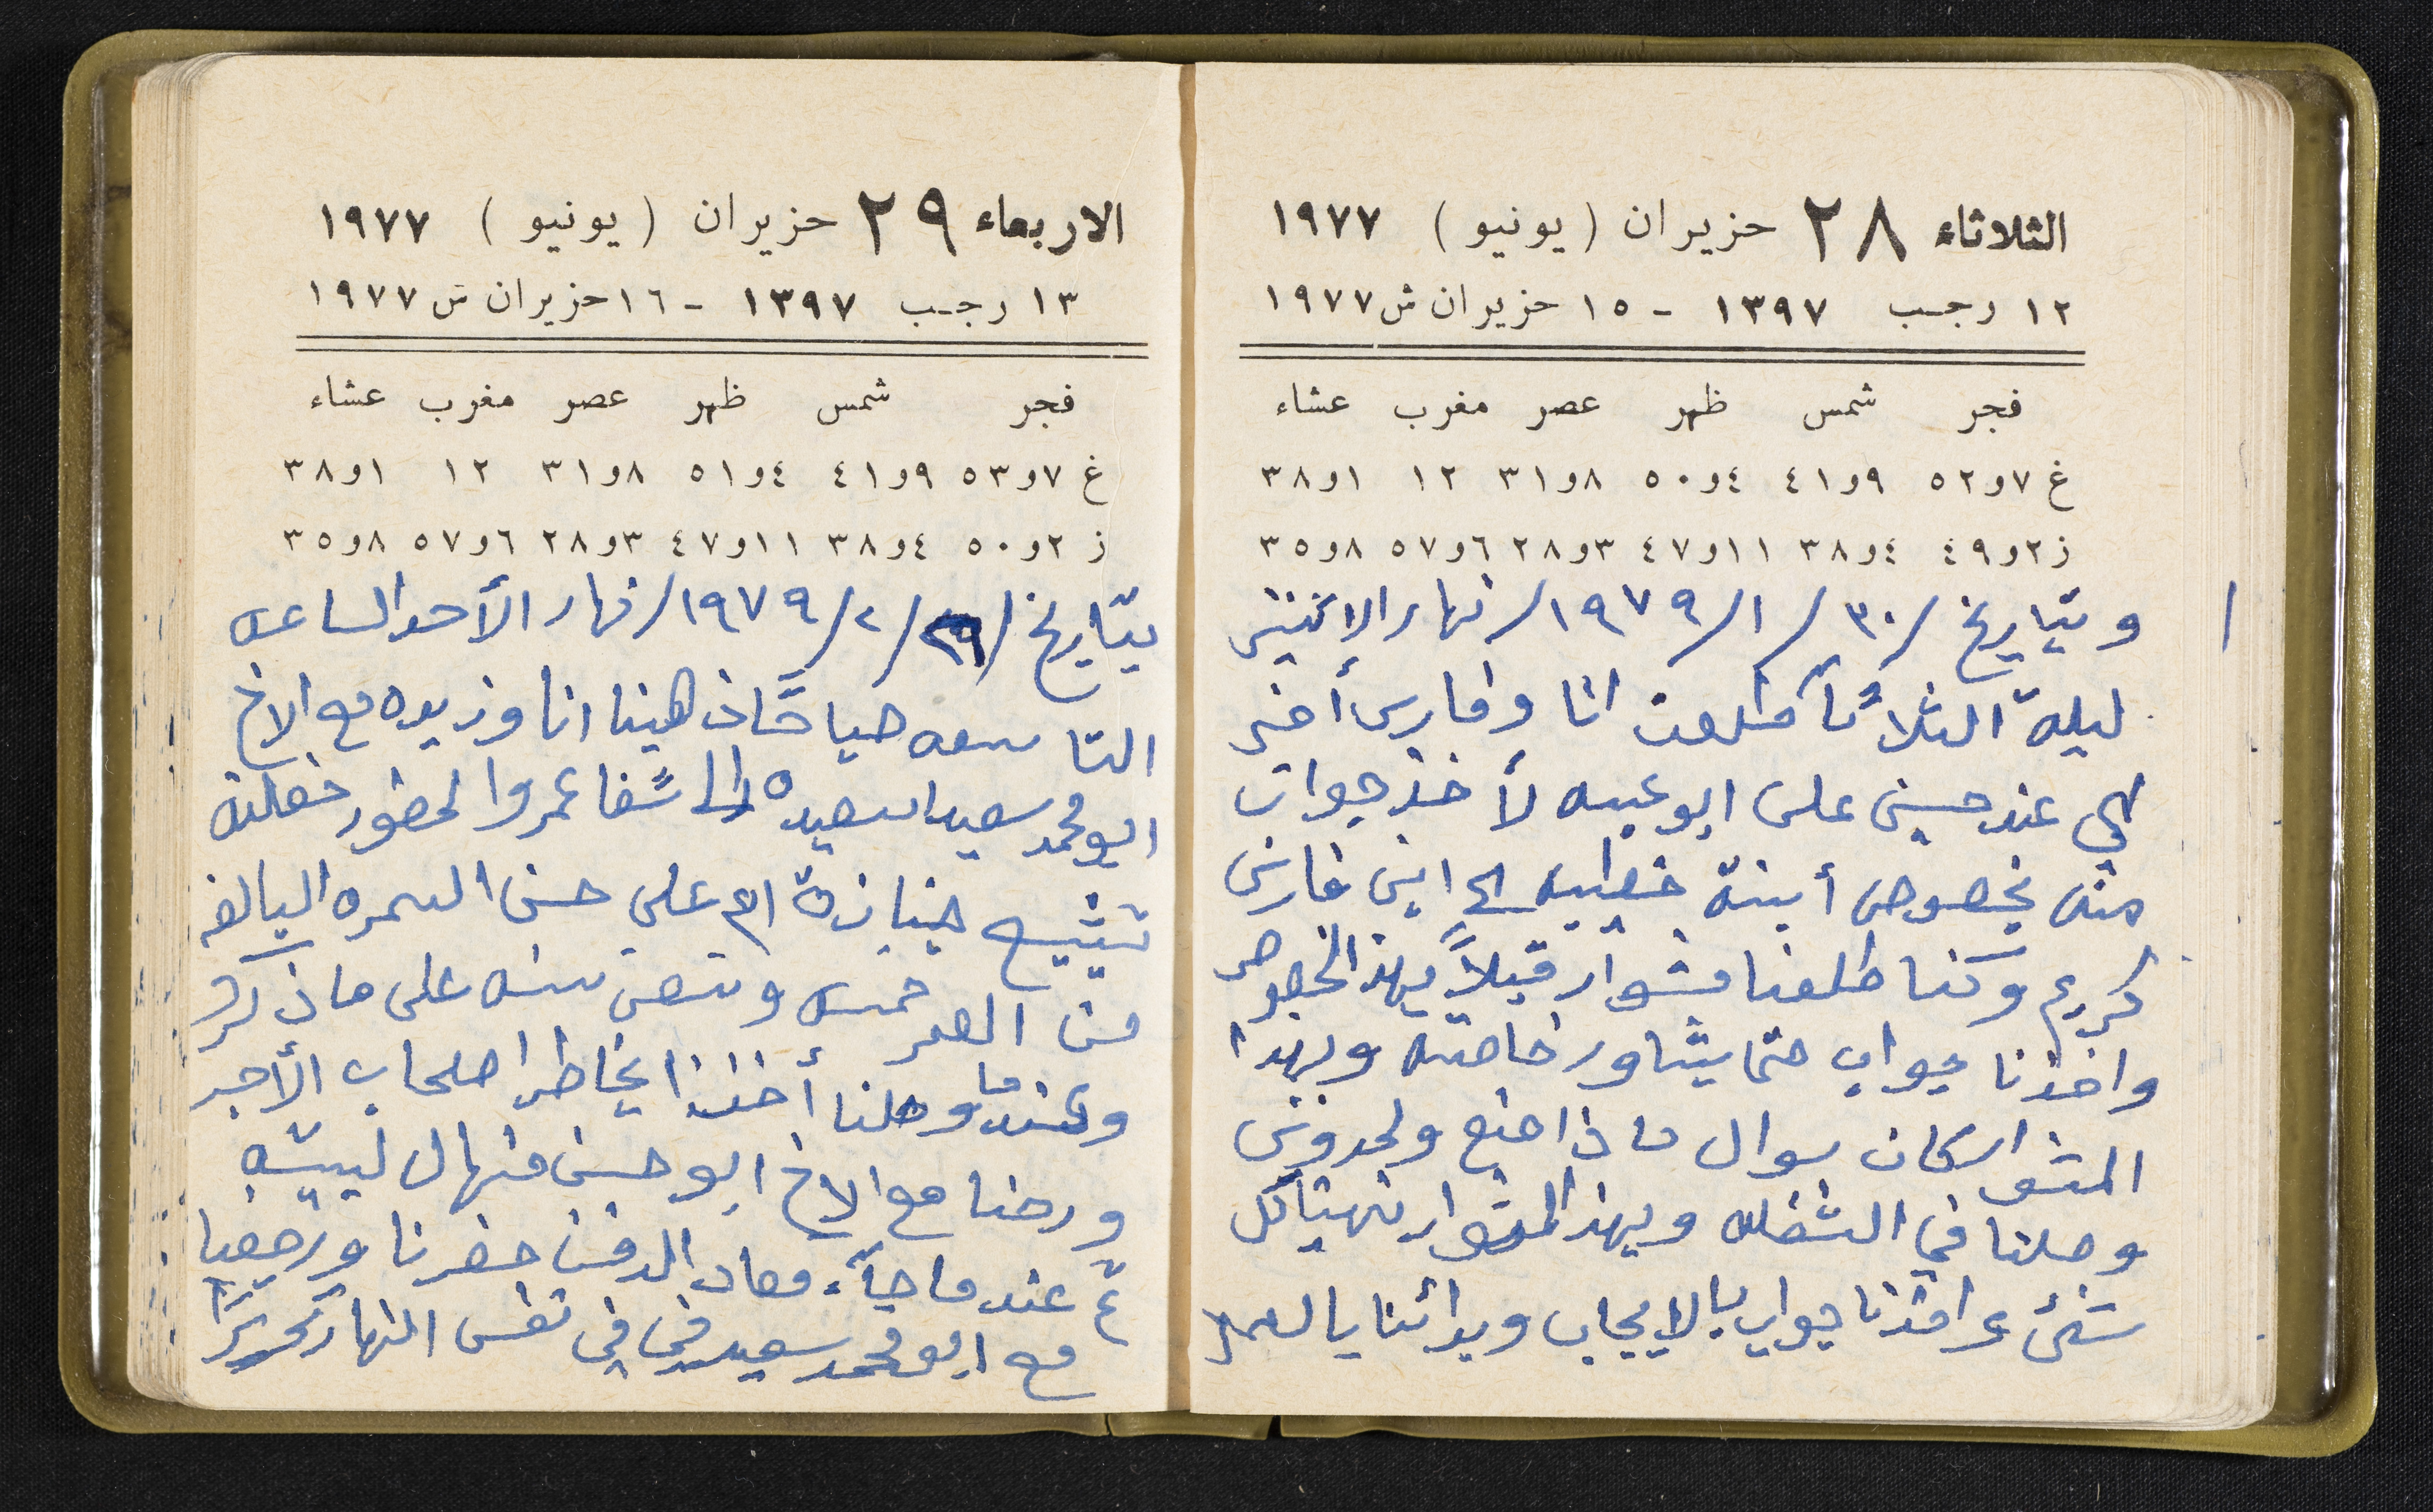 الثلاثاء ٢٨ حزيران (يونيو) ١٩٧٧
١٢ رجب ١٣٩٧ - ١٥ حزيران ش ١٩٧٧
فجر شمس ظهر عصر مغرب عشاء
غ ٧و٥٢ ٩و٤١ ٤و٥٠ ٨و٣١ ١٢ ١و٣٨
ز ٢و٤٩ ٤و٣٨ ١١و٤٧ ٣و٢٨ ٦و٥٧ ٨و٣٥
وبتاريخ /٣٠/١/١٩٧٩/ نهار الاثنين
ليلة الثلاثاً طلعت انا وفارس أخي
الي عند حسين علي ابو عبيه لأخذ جواب
منه بخصوص أبنة خطيبه الي ابني فارس
كريم وكنا طلعنا مشوار قبلاً بهذا الخصوص
واخذنا جواب حتما يشاور خاصته وبهذا
المشوار كان سوال ماذا صنع ولحدوين
وصلنا في الشغله وبهذا المشوار تهيئا كل
شئ واخذنا جواب بالايجاب وبدائنا بالعمل
الاربعاء ٢٩ حزيران (يونيو) ١٩٧٧
١٣ رجب ١٣٩٧ - ١٦ حزيران ش ١٩٧٧
فجر شمس ظهر عصر مغرب عشاء
غ ٧و٥٣ ٩و٤١ ٤و٥١ ٨و٣١ ١٢ ١و٣٨
ز ٢و٥٠ ٤و٣٨ ١١و٤٧ ٣و٢٨ ٦و٥٧ ٨و٣٥
بتاريخ /٢/١٩٧٩/ نهار الأحد الساعه
التاسعه صباحاً ذهبنا انا وزيده مع الاخ
ابو محمد سعيد اسعيده الى شفا عمروا لحضور حفلة
تشيع جنازة ام علي حسن السمره البالغه
من العمر خمسه وتسعين سنه على ما ذكر
وعندما وصلنا أخذنا بخاطر اصحاب الأجر
ورحنا مع الاخ ابو حسن منهال لبيته
عندما جآء معاد الدفن حضرنا ورجعنا
مع ابو محمد سعيد في نفس النهار تحريراً